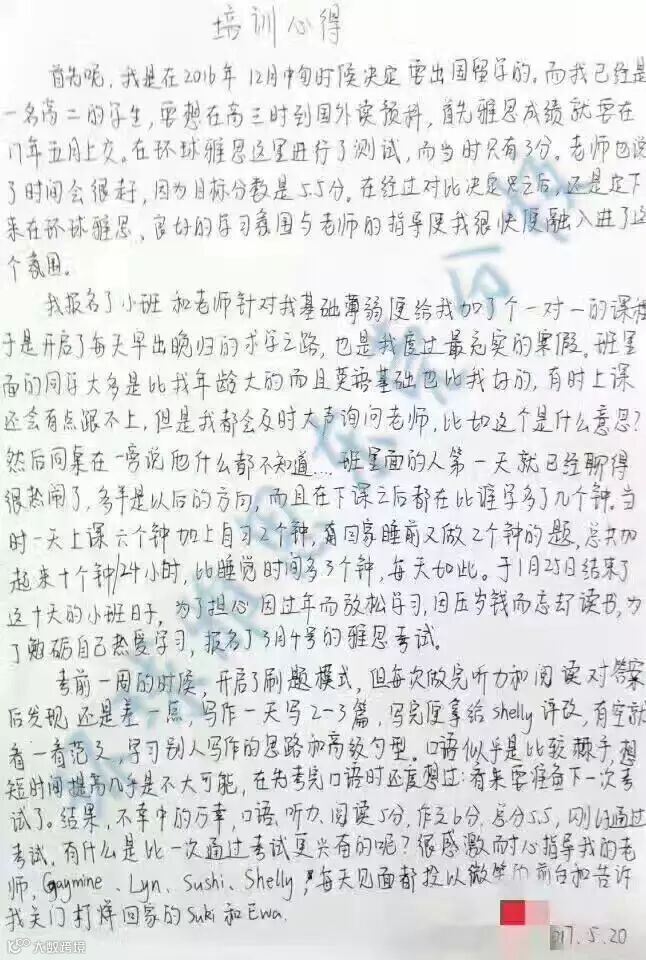 培训心得
首先呢，我是在2016年12月中旬时候决定要出国留学的。而我已经是
一名高二的学生，要想在高三时到国外读预科，首先雅思成绩就要在
17年五月上交。在环球雅思这里进行了测试，而当时只有3分。老师也说
了时间会很赶，因为目标分数是5.5分。在经过对比决定思之后，还是定下
来在环球雅思。良好的学习氛围与老师的指导使我很快便融入进了这
个氛围。
我报名了小班 和老师针对我基础薄弱便给我加了个一对一的课程
于是开启了每天早出晚归的求学之路，也是我度过最充实的寒假。班里
面的同学大多是比我年龄大的而且英语基础也比我好的，有时上课
还会有点跟不上，但是我都会及时大声询问老师，比如这个是什么意思？
然后同桌在一旁说他什么都不知道....班里面的人第一天就已经聊得
很热闹了，多半是以后的方向，而且在下课之后都在比谁学多了几个钟。当
时一天上课六个钟加上自习2个钟，回家睡前又做2个钟的题，总共加
起来十个钟/24小时，比睡觉时间多3个钟，每天如此。于1月25日结束了
这十天的小班日子，为了担心因过年而放松学习，因压岁钱而忘却读书，为
了勉励自己热爱学习，报名了3月4号的雅思考试。
考前一周的时候，开启了刷题模式，但每次做完听力和阅读对答案
后发现还是差一点，写作一天写2-3篇，写完便拿给shelly评改，有空就
看一看范文，学习别人写作的思路和高级句型。口语似乎是比较棘手，想
短时间提高几乎是不大可能，在考完口语时还度想过：看来要准备下一次考
试了。结果，不幸中的万幸，口语、听力、阅读5分，作文6分，总分5.5，刚好通过
考试，有什么是比一次通过考试更兴奋的呢？很感激耐心指导我的老
师，Gaymine、Lyn、Sushi、Shelly，每天见面都投以微笑的前台和告诉
我关门打烊回家的Suki和Ewa.
017.5.20
大数跨境